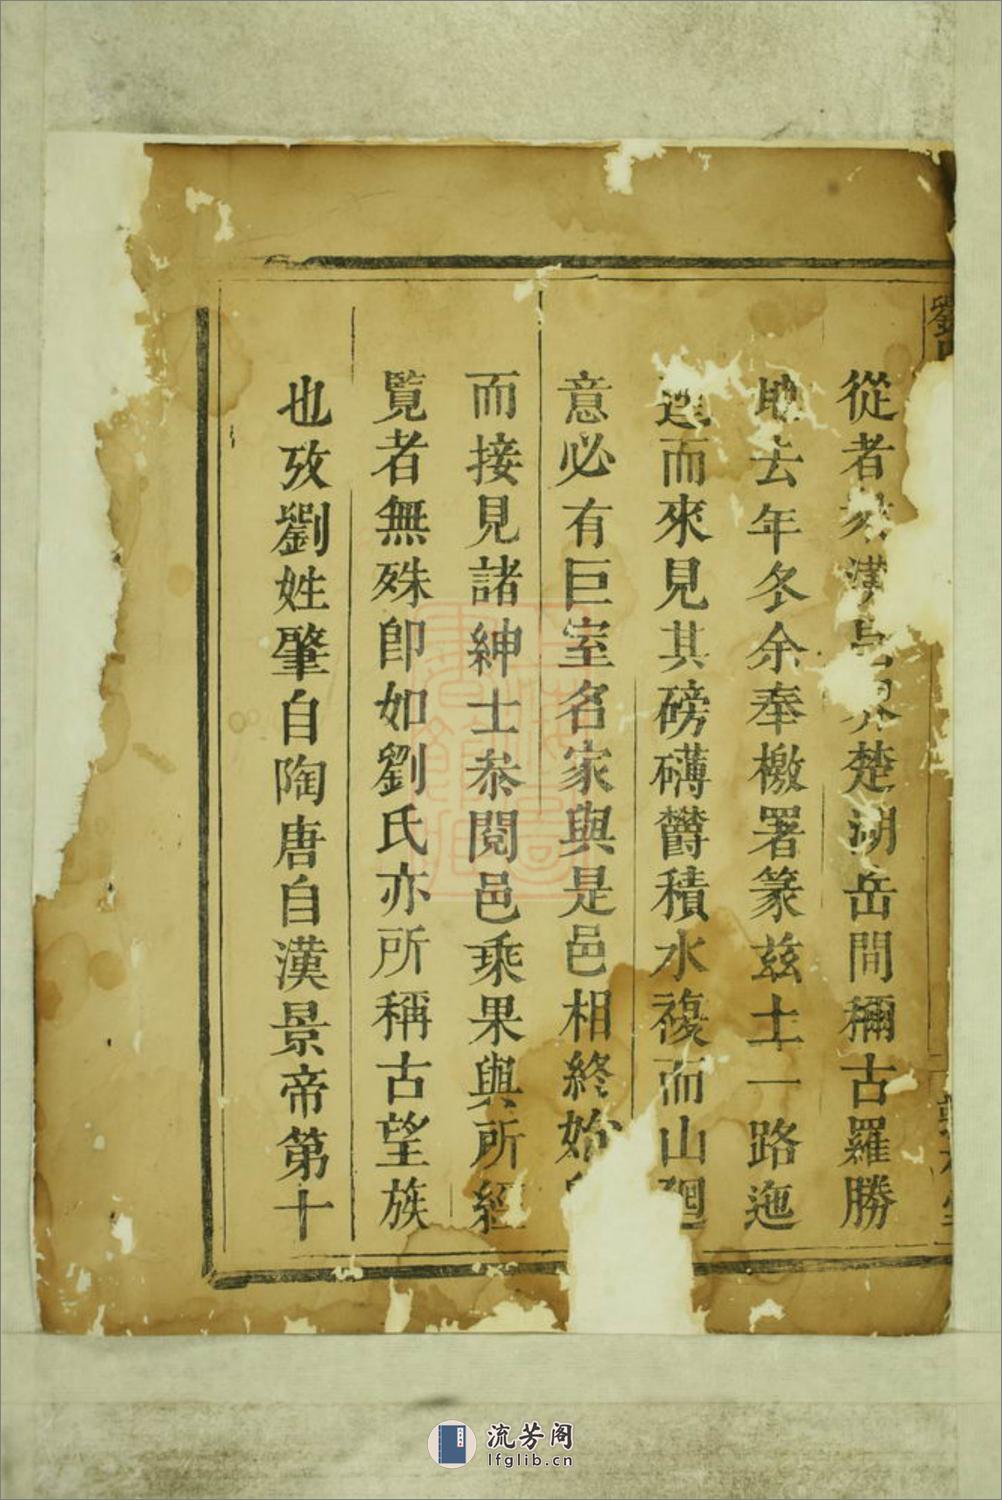 從者 漢 界楚湖岳間稱古羅勝
地去年冬余奉檄署篆兹土一路迤
邐而來見其磅礴鬱積水複而山廻
意必有巨室名家與是邑相終始
而接見諸紳士叅閱邑乘果與所經
覧者無殊卽如劉氏亦所稱古望族
也攷劉姓肇自陶唐自漢景帝第十
劉
流芳阁
lfglib.cn